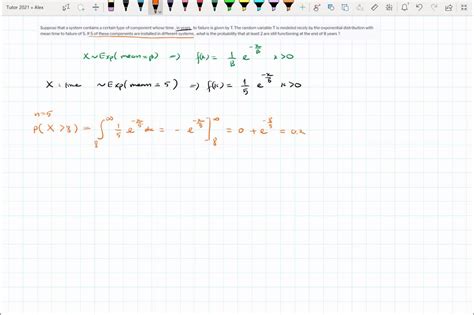 Tutor 2021 > Alex
Suppose that a system contains a certain type of component whose time, in years, to failure is given by T. The random variable T is modeled nicely by the exponential distribution with
mean time to failure of 5. If 5 of these components are installed in different systems, what is the probability that at least 2 are still functioning at the end of 8 years ?
X ~ Exp(mean=β) => f(x) = 1/β e^(-x/β) x>0
X : time ~ Exp(mean = 5) => f(x) = 1/5 e^(-x/5) x>0
n=5
P(X>8) = ∫_8^∞ 1/5 e^(-x/5) dx = - e^(-x/5) ]_8^∞ = 0 + e^(-8/5) = 0.2